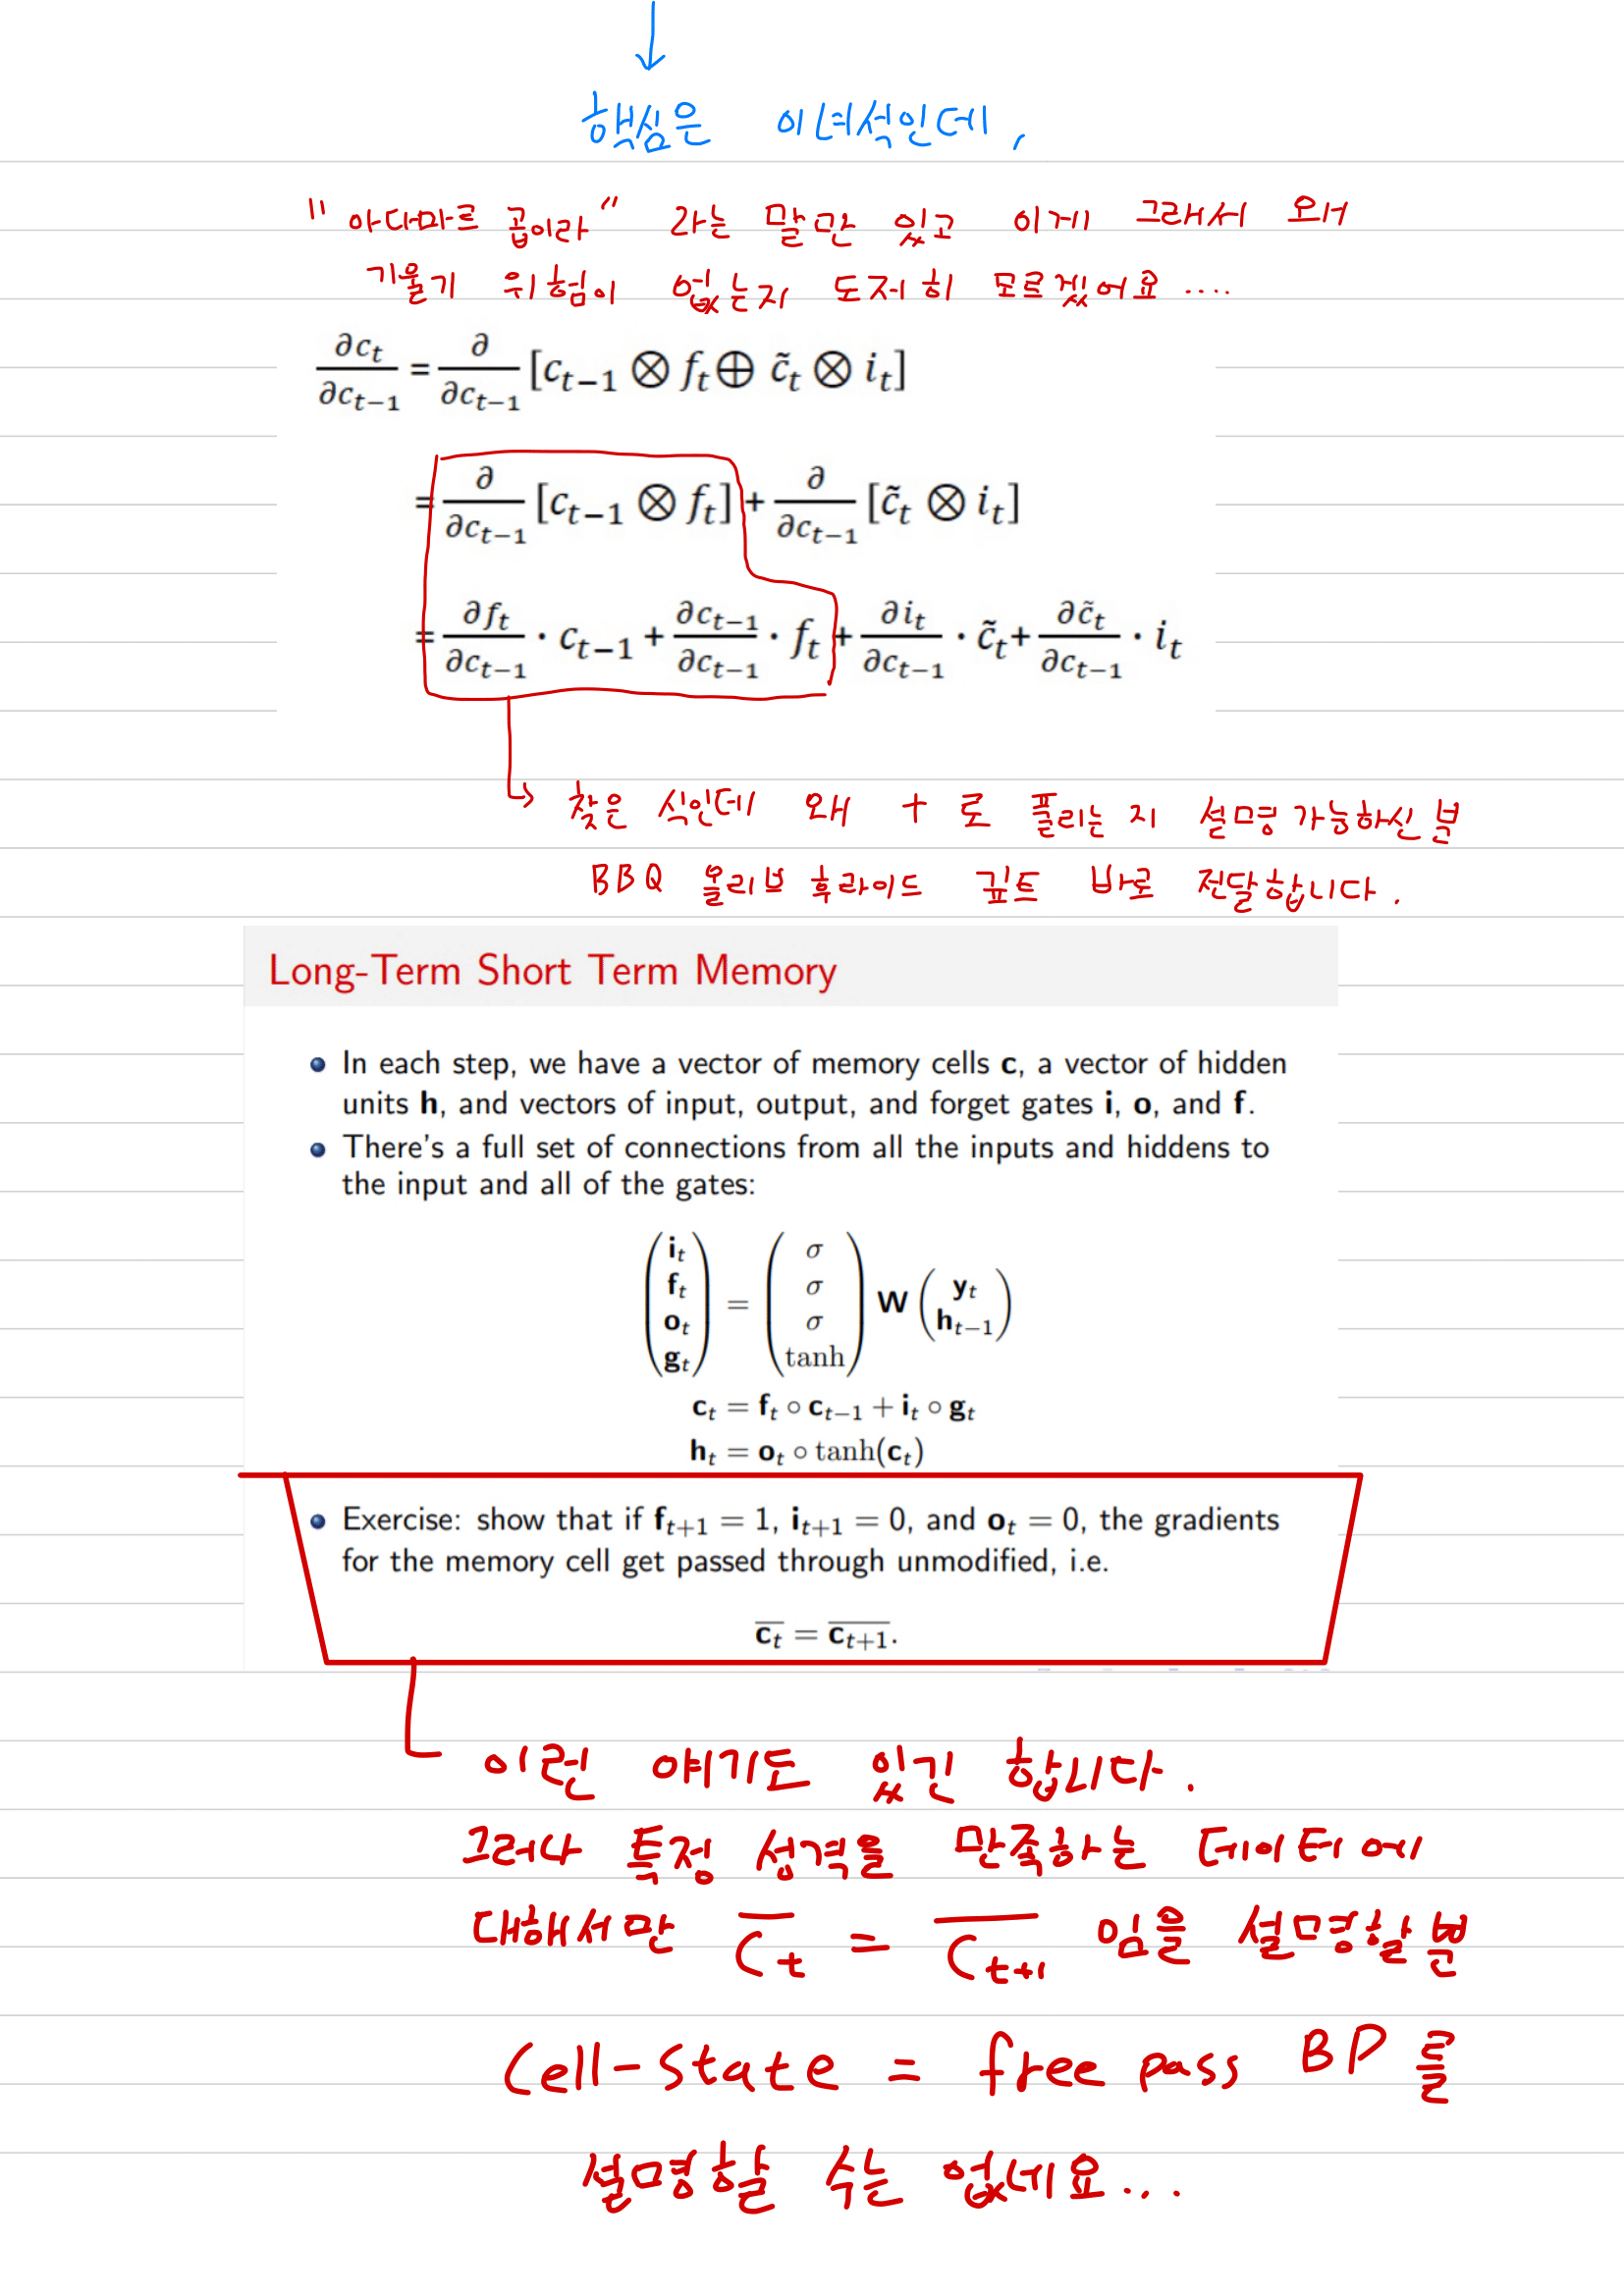 핵심은 이녀석인데,
"아다마르 곱이라" 라는 말만 있고 이게 그래서 모어
기울기 위험이 없는지 도저히 모르겠어요 ....
∂c_t/∂c_{t−1} = ∂/∂c_{t−1} [c_{t−1} ⊗ f_t ⊕ c̃_t ⊗ i_t]
= ∂/∂c_{t−1} [c_{t−1} ⊗ f_t] + ∂/∂c_{t−1} [c̃_t ⊗ i_t]
= ∂f_t/∂c_{t−1} · c_{t−1} + ∂c_{t−1}/∂c_{t−1} · f_t + ∂i_t/∂c_{t−1} · c̃_t + ∂c̃_t/∂c_{t−1} · i_t
찾은 식인데 왜 + 로 풀리는 지 설명 가능하신 분
BBQ 올리브 후라이드 깊트 바로 전달합니다.
Long-Term Short Term Memory
In each step, we have a vector of memory cells c, a vector of hidden
units h, and vectors of input, output, and forget gates i, o, and f.
There's a full set of connections from all the inputs and hiddens to
the input and all of the gates:
(i_t f_t o_t g_t) = (σ σ σ tanh) W (y_t h_{t−1})
c_t = f_t ∘ c_{t−1} + i_t ∘ g_t
h_t = o_t ∘ tanh(c_t)
Exercise: show that if f_{t+1} = 1, i_{t+1} = 0, and o_t = 0, the gradients
for the memory cell get passed through unmodified, i.e.
c̅_t̅ = c̅_{t+1}.
이런 얘기도 있긴 합니다.
그러나 특정 성격을 만족하는 데이터에
대해서만 C̅_t = C̅_{t+1} 임을 설명할뿐
Cell-State = free pass BP를
설명할 수는 없네요...